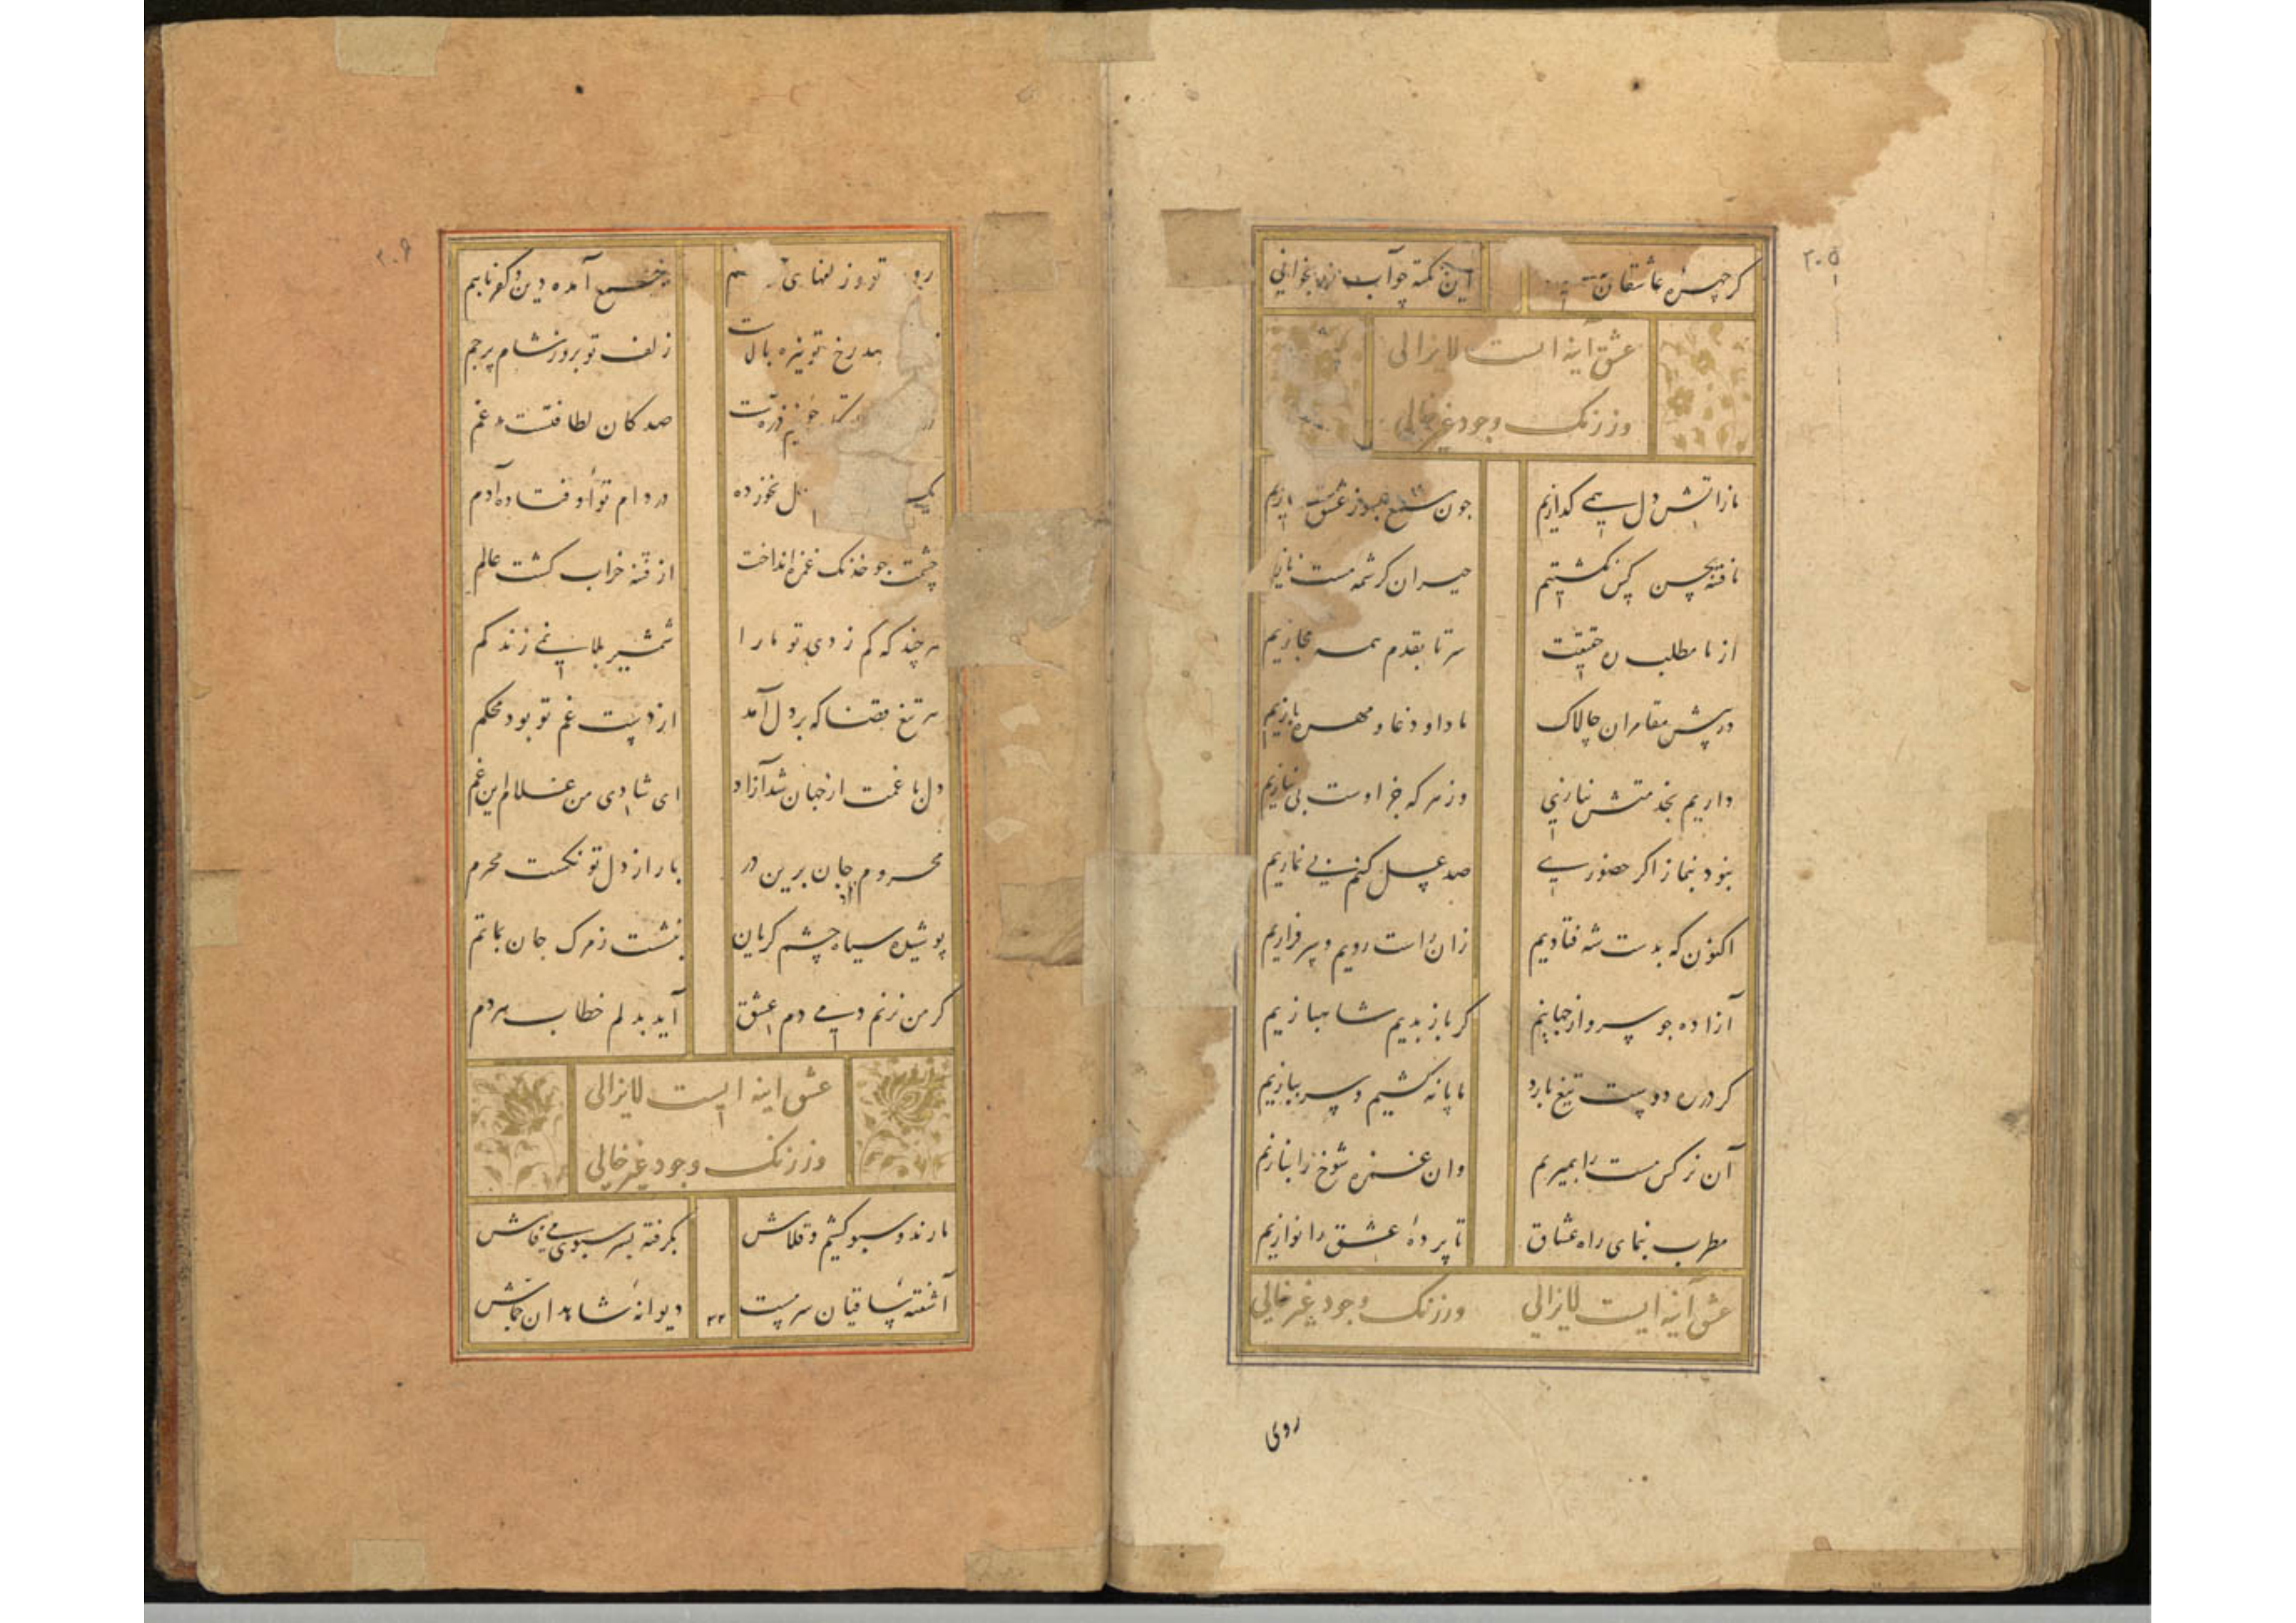 ۲۰۵
گر چهرهٔ عاشقان این نکته چو آب بخوانی
عشق آینه ایست لایزالی
وز زنک وجود غیر خالی
ما ز آتش دل همی گدازیم چون شمع عشق
ما فتنه بحسن کس نکشتیم حیران کرشمه مست نازیم
از ما مطلب ره حقیقت سر تا بقدم همه مجازیم
در پیش مقامران چالاک ما داو دغا و مهره بازیم
داریم بخدمتش نیازی وز هر که جز اوست بی نیازیم
نبود بنماز اگر حضوری صد غسل کنیم بی نمازیم
اکنون که بدست شه فتادیم گر باز بدیم شاهبازیم
آزاده جو سرو از جهانیم زان راست رویم و سرفرازیم
گر در ره دوست تیغ بارد ما پا نه کشیم و سر ببازیم
آن نرکس مست را بمیریم وان غمزه شوخ را بنازیم
مطرب بنمای راه عشاق تا پردهٔ عشق را نوازیم
عشق آینه ایست لایزالی وز زنک وجود غیر خالی
روی
۲۰۶
روی تو و زلفهای جمع آمده دین و کفر باهم
رخ تو نیزه بالاست زلف تو بروز شام پرچم
صد کان لطافتست مدغم
نخورده در دام تو اوفتاده آدم
چشمت جو خدنک غمزه انداخت از فتنه خراب کشت عالم
هر چند که کم زدی تو ما را شمشیر بلا نمی زند کم
هر تیغ قضا که بر دل آمد از دست غم تو بود محکم
دل با غمت از جهان شد آزاد ای شادی من غلام این غم
محروم جان برین در با راز دل تو نکست محرم
پوشیده سیاه چشم کریان بنشست ز مرک جان بماتم
گر من نزنم دمی دم عشق آید بدلم خطاب هر دم
عشق اینه ایست لایزالی
وز زنک وجود غیر خالی
ما رند و سبو کشیم و قلاش بکرفته بسر سبوی می فاش
آشفتهٔ ساقیان سرمست دیوانهٔ شاهدان جماش